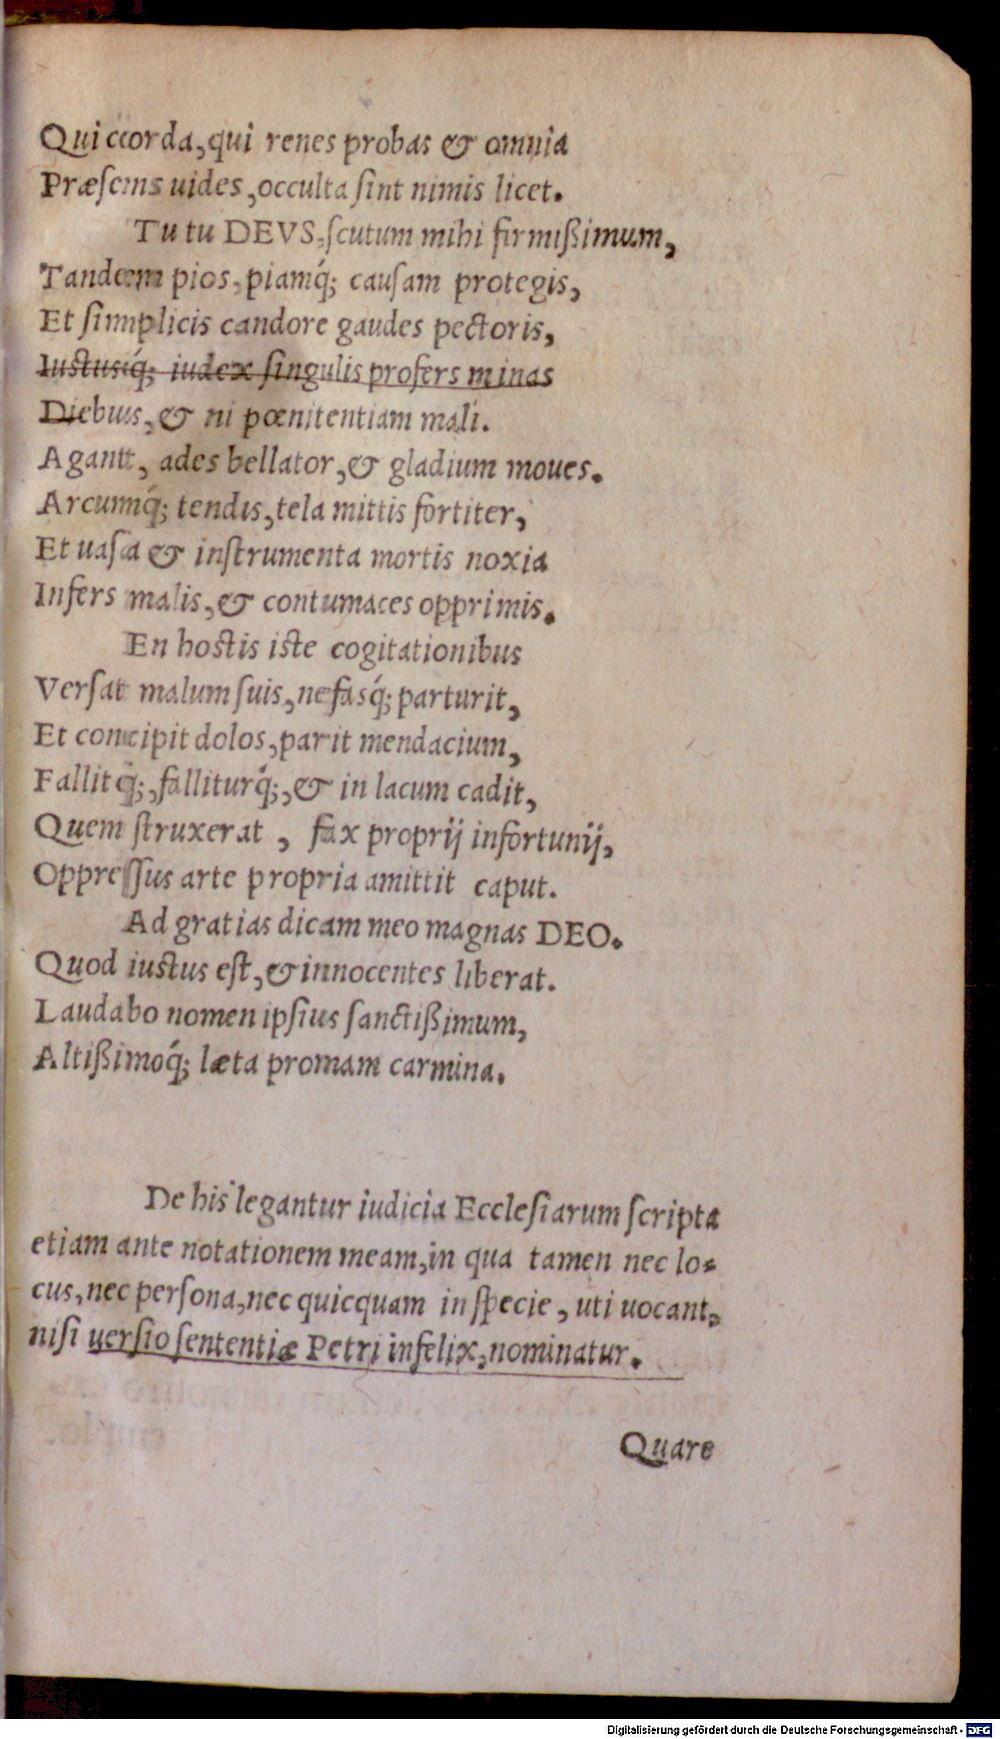 Qui corda, qui renes probas & omnia
Præſens uides, occulta ſint nimis licet.
Tu tu DEVS, ſcutum mihi firmiſſimum,
Tandem pios, piamq́; cauſam protegis,
Et ſimplicis candore gaudes pectoris,
Iustusq́; iudex ſingulis profers minas
Diebus, & ni pœnitentiam mali.
Agant, ades bellator, & gladium moues.
Arcumq́; tendis, tela mittis fortiter,
Et uaſa & inſtrumenta mortis noxia
Infers malis, & contumaces opprimis.
En hostis iste cogitationibus
Verſat malum ſuis, nefasq́; parturit,
Et concipit dolos, parit mendacium,
Fallitq́;, falliturq́;, & in lacum cadit,
Quem ſtruxerat, fax proprij infortunij,
Oppreſſus arte propria amittit caput.
Ad gratias dicam meo magnas DEO.
Quod iustus eſt, & innocentes liberat.
Laudabo nomen ipſius ſanctiſſimum,
Altiſſimoq́; læta promam carmina.
De his legantur iudicia Eccleſiarum ſcripta
etiam ante notationem meam, in qua tamen nec lo=
cus, nec perſona, nec quicquam in ſpecie, uti uocant,
niſi uerſio ſententiæ Petri infelix, nominatur.
Quare
Digitalisierung gefördert durch die Deutsche Forschungsgemeinschaft - DFG